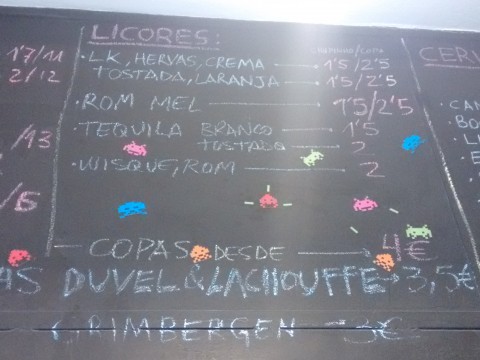 LICORES:
1'7/11
2/12
CHUPITO/COPA
CERV
LK, HERVAS, CREMA 1'5/2'5
TOSTADA, LARANJA 1'5/2'5
ROM MEL 1'5/2'5
/13
TEQUILA BRANCO 1'5
TOSTADO 2
WISQUE, ROM 2
/5
COPAS DESDE 4€
AS DUVEL & LACHOUFFE 3,5€
GRIMBERGEN 3€